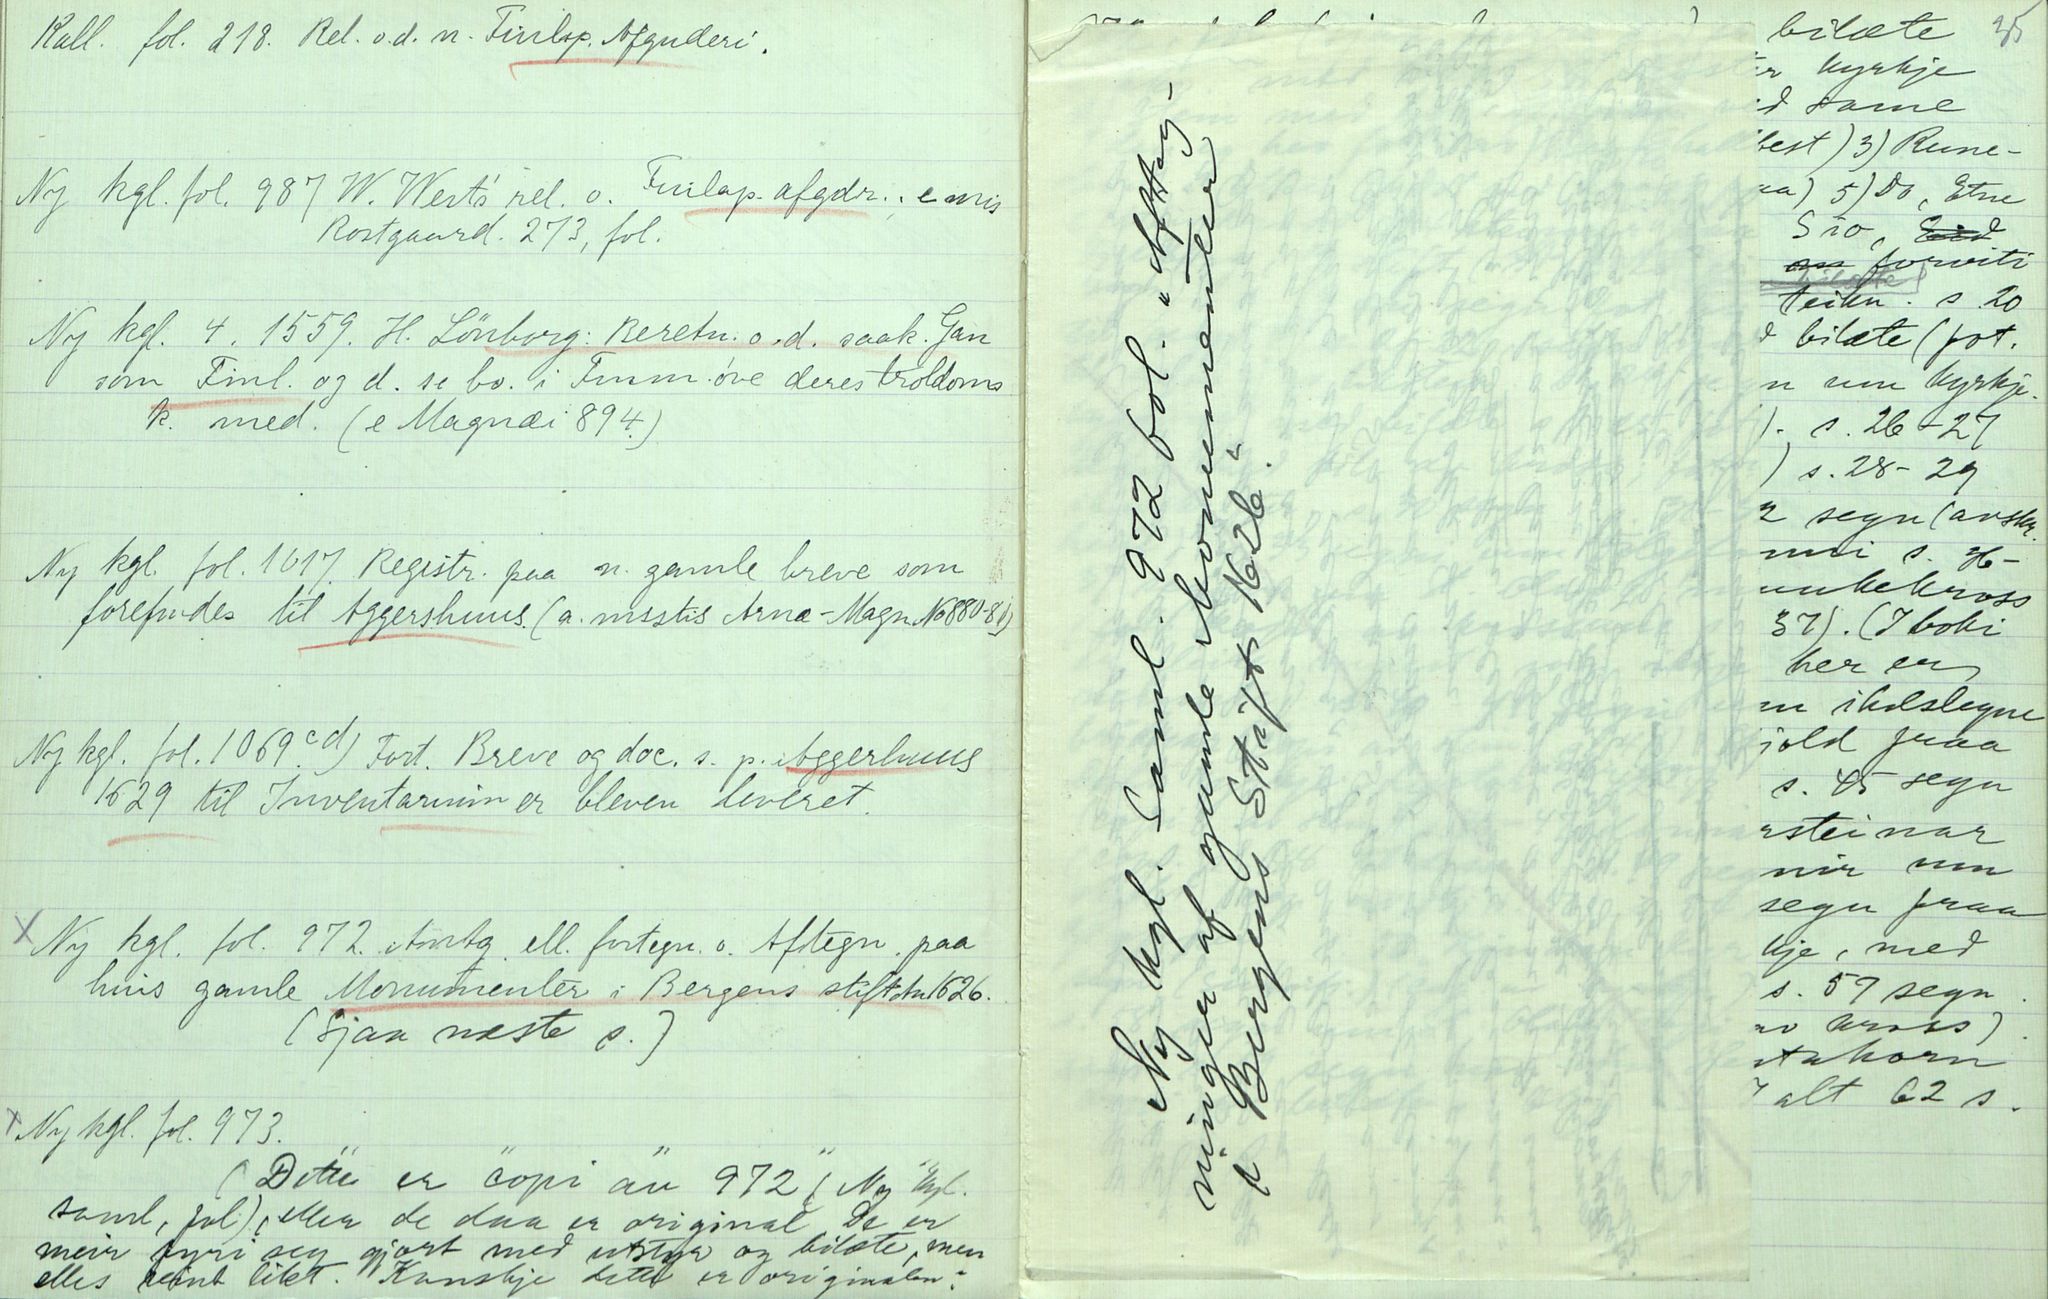 Kall. fol. 218. Rel. o.d. n. Finlap. Afguderi.
Ny kgl. fol. 987 W. Westś rel. o. Finlap. afgdr.. e mis
Rostgaard. 273, fol.
Ny kgl. 4. 1559. H. Lönborg: Beretn. o.d. saak. Gan
som Finl. og d. se bo. i Finm. öve deres troldoms
k. med. (e Magnæi 894.)
Ny kgl. fol. 1017. Registr. paa n. gamle breve som
forefindes til Aggershuus. (a. msstis Arnæ-Magn. No 880-81)
Ny kgl. fol. 1069 c d) Fort. Breve og doc. s. p. Aggerhuus
1629 til Inventarium er bleven leveret.
X Ny kgl. fol. 972. Antg. ell. fortegn. o. Aftegn. paa
huis gamle Monumenter i Bergens stift An 1626.
(Sjaa næste s.)
x Ny kgl. fol. 973.
(Dette er copi au 972 (Ny kgl.
saml, fol), eller de daa er original. De er
meir fyri seg gjort med utstyr og bilæte, men
elles reint likt. Kanskje dette er originalen.
Ny kgl. Saml. 972 bol. "Afteg-
ninger af gamle Monumenter
i Bergens Stift 1626".
35
bilæte
kyrkje
same
best) 3) Rune-
5) Do, Etne
Sio,
forviti
teikn. s 20
bilæte (fot.
n um kyrkje.
)- s. 26-27
) s. 28-29
segn (avskr.
s.
unkekross
37). (I boki
her er
ikelslegne
jold fraa
s. 45 segn
rsteinar
um
segn fraa
kje, med
s. 59 segn.
kross)
horn
alt 62 s.